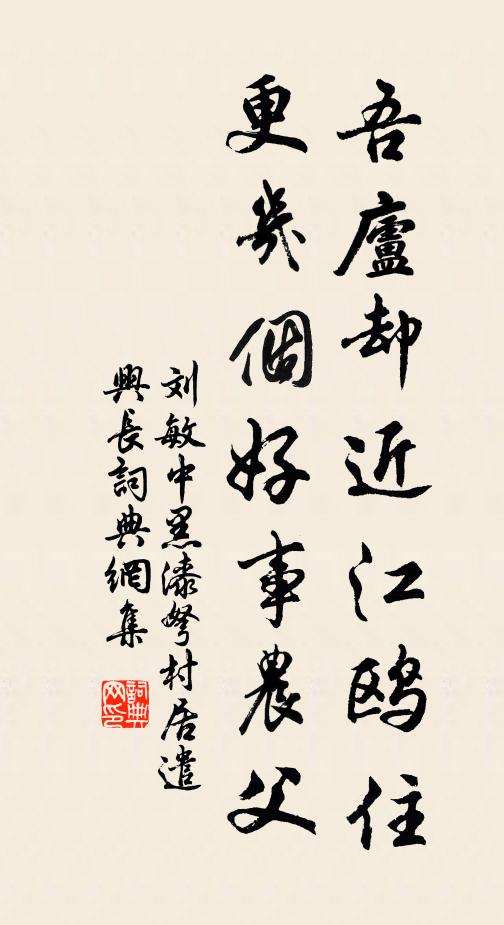 吾廬却近江鸥住
更几個好事農父
刘敏中黑漆弩村居遣
興長詞典網集
詞典
网印